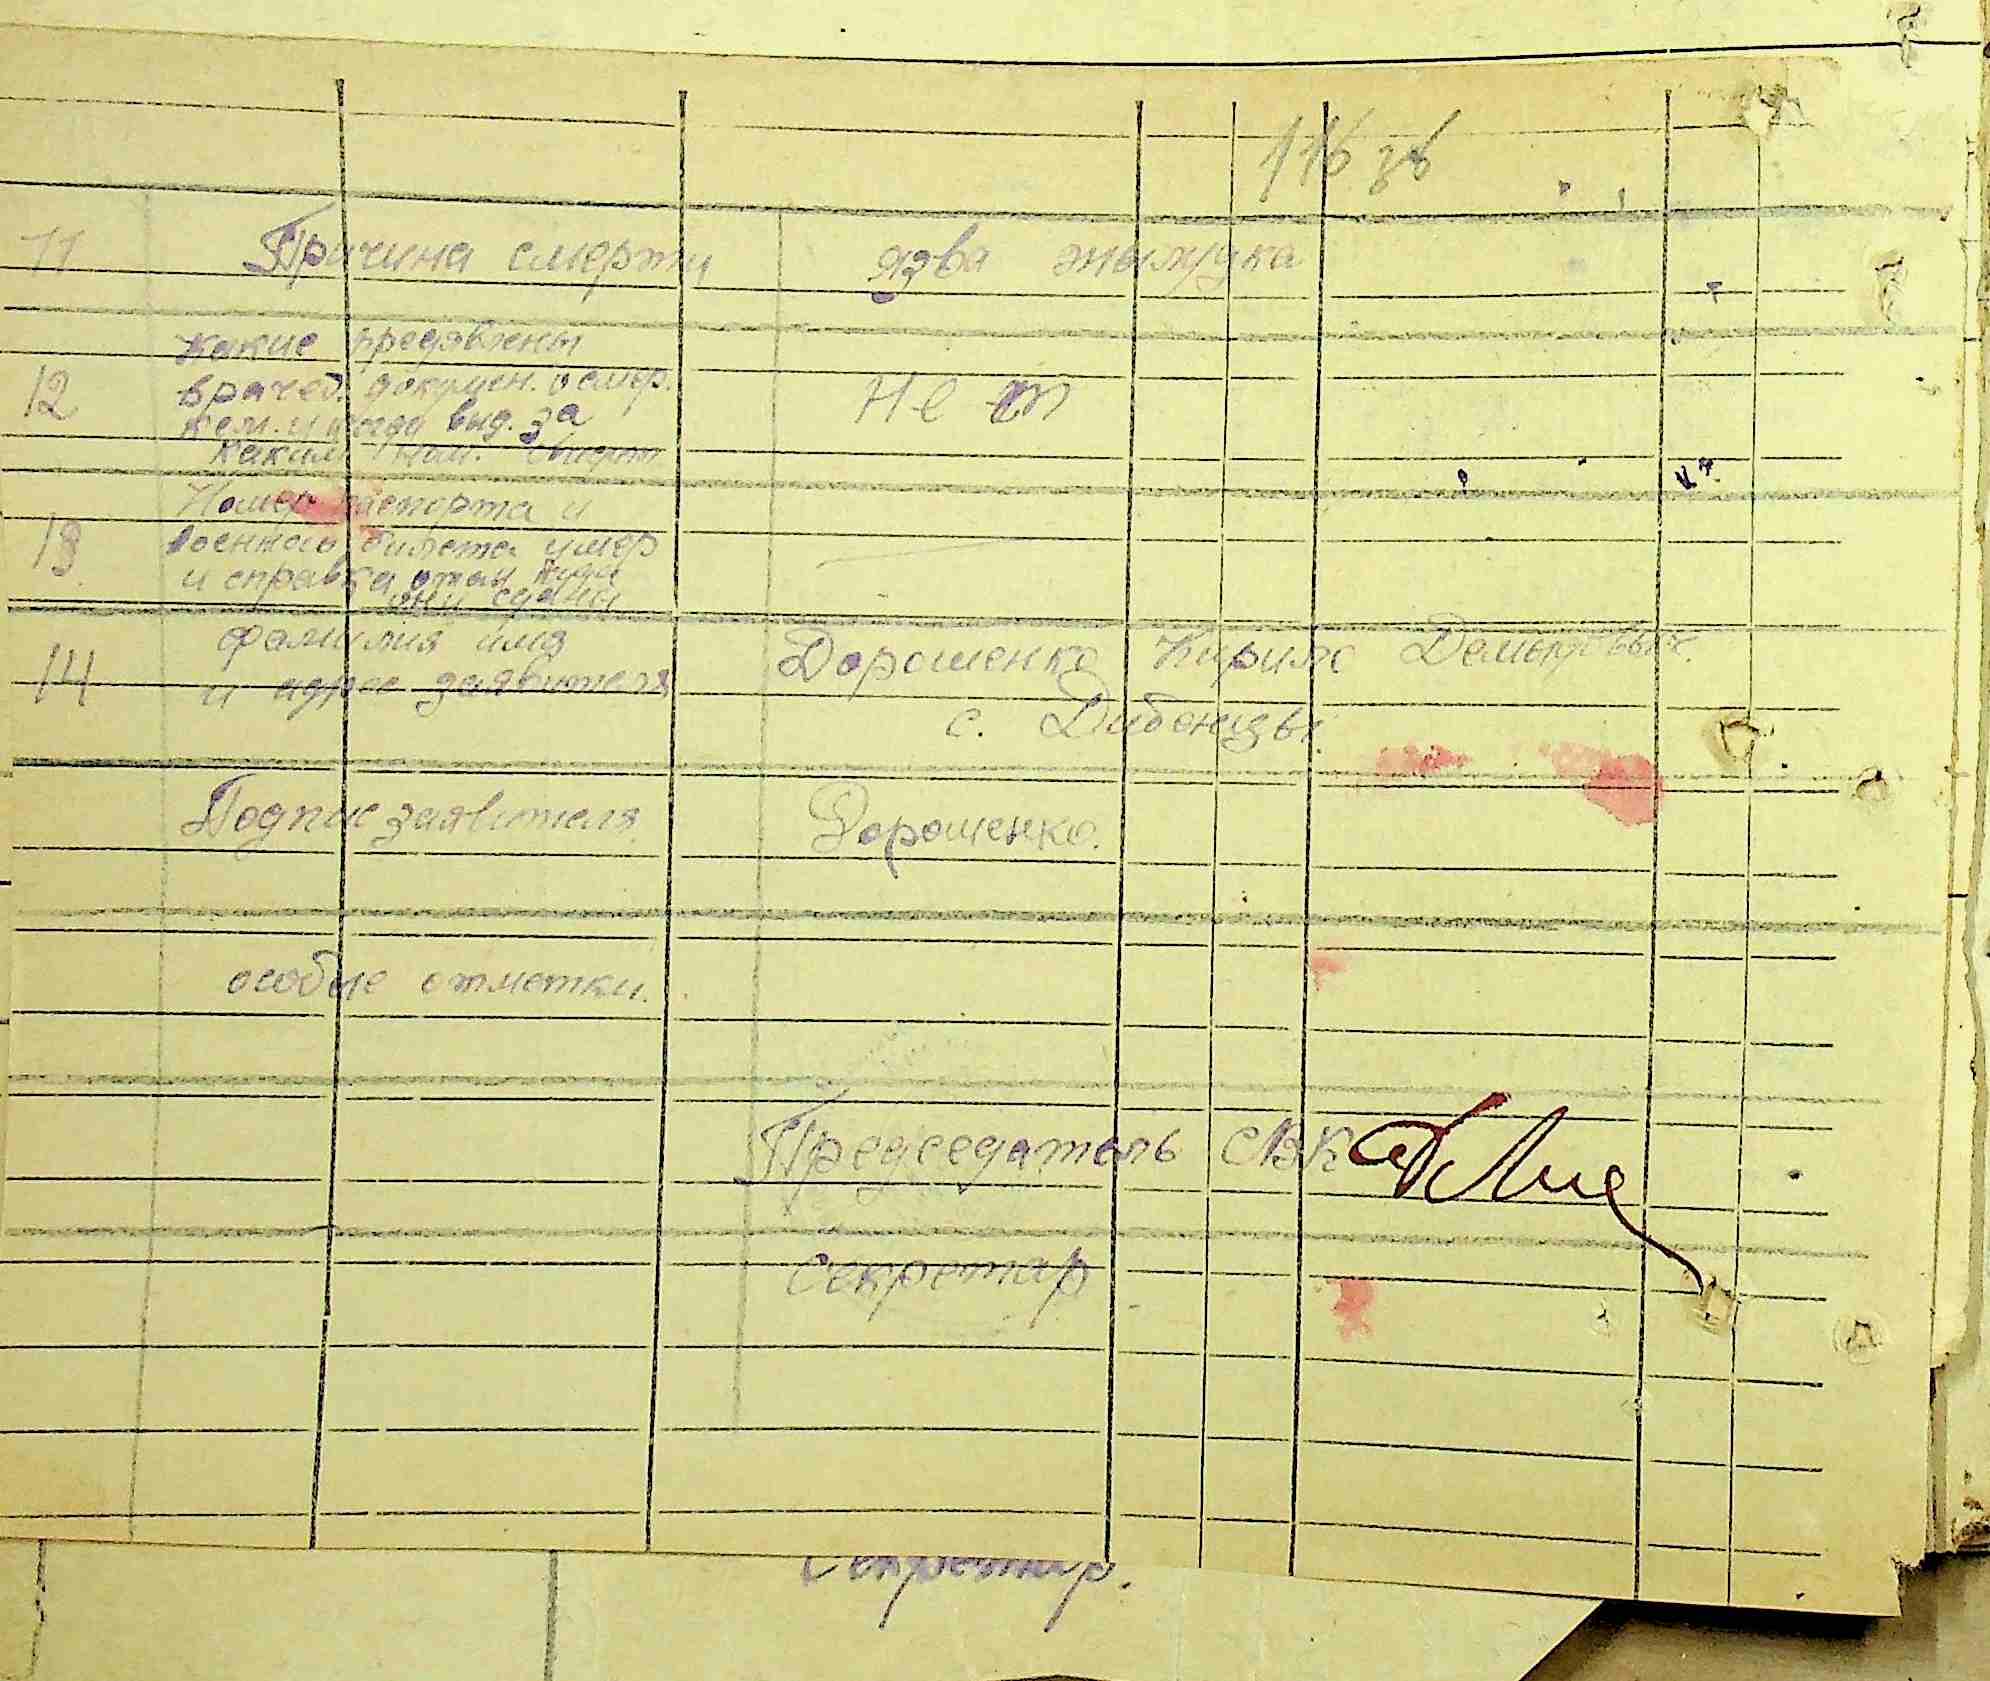 116 зв
11 Причина смерти язва жылудка
какие предявлены
12 врачеб. докумен. о смер. Нет
кем. и когда выд. за
каким
Номер паспорта и
13 военного билета умер
и справка о том куда
они сданы
фамилия имя Дорошенко Кирило
14 и адрес заявителя
с. Дибенцы.
Подпис заявителя Дорошенко.
особые отметки.
Председатель СВК
Секретар
Секретар.